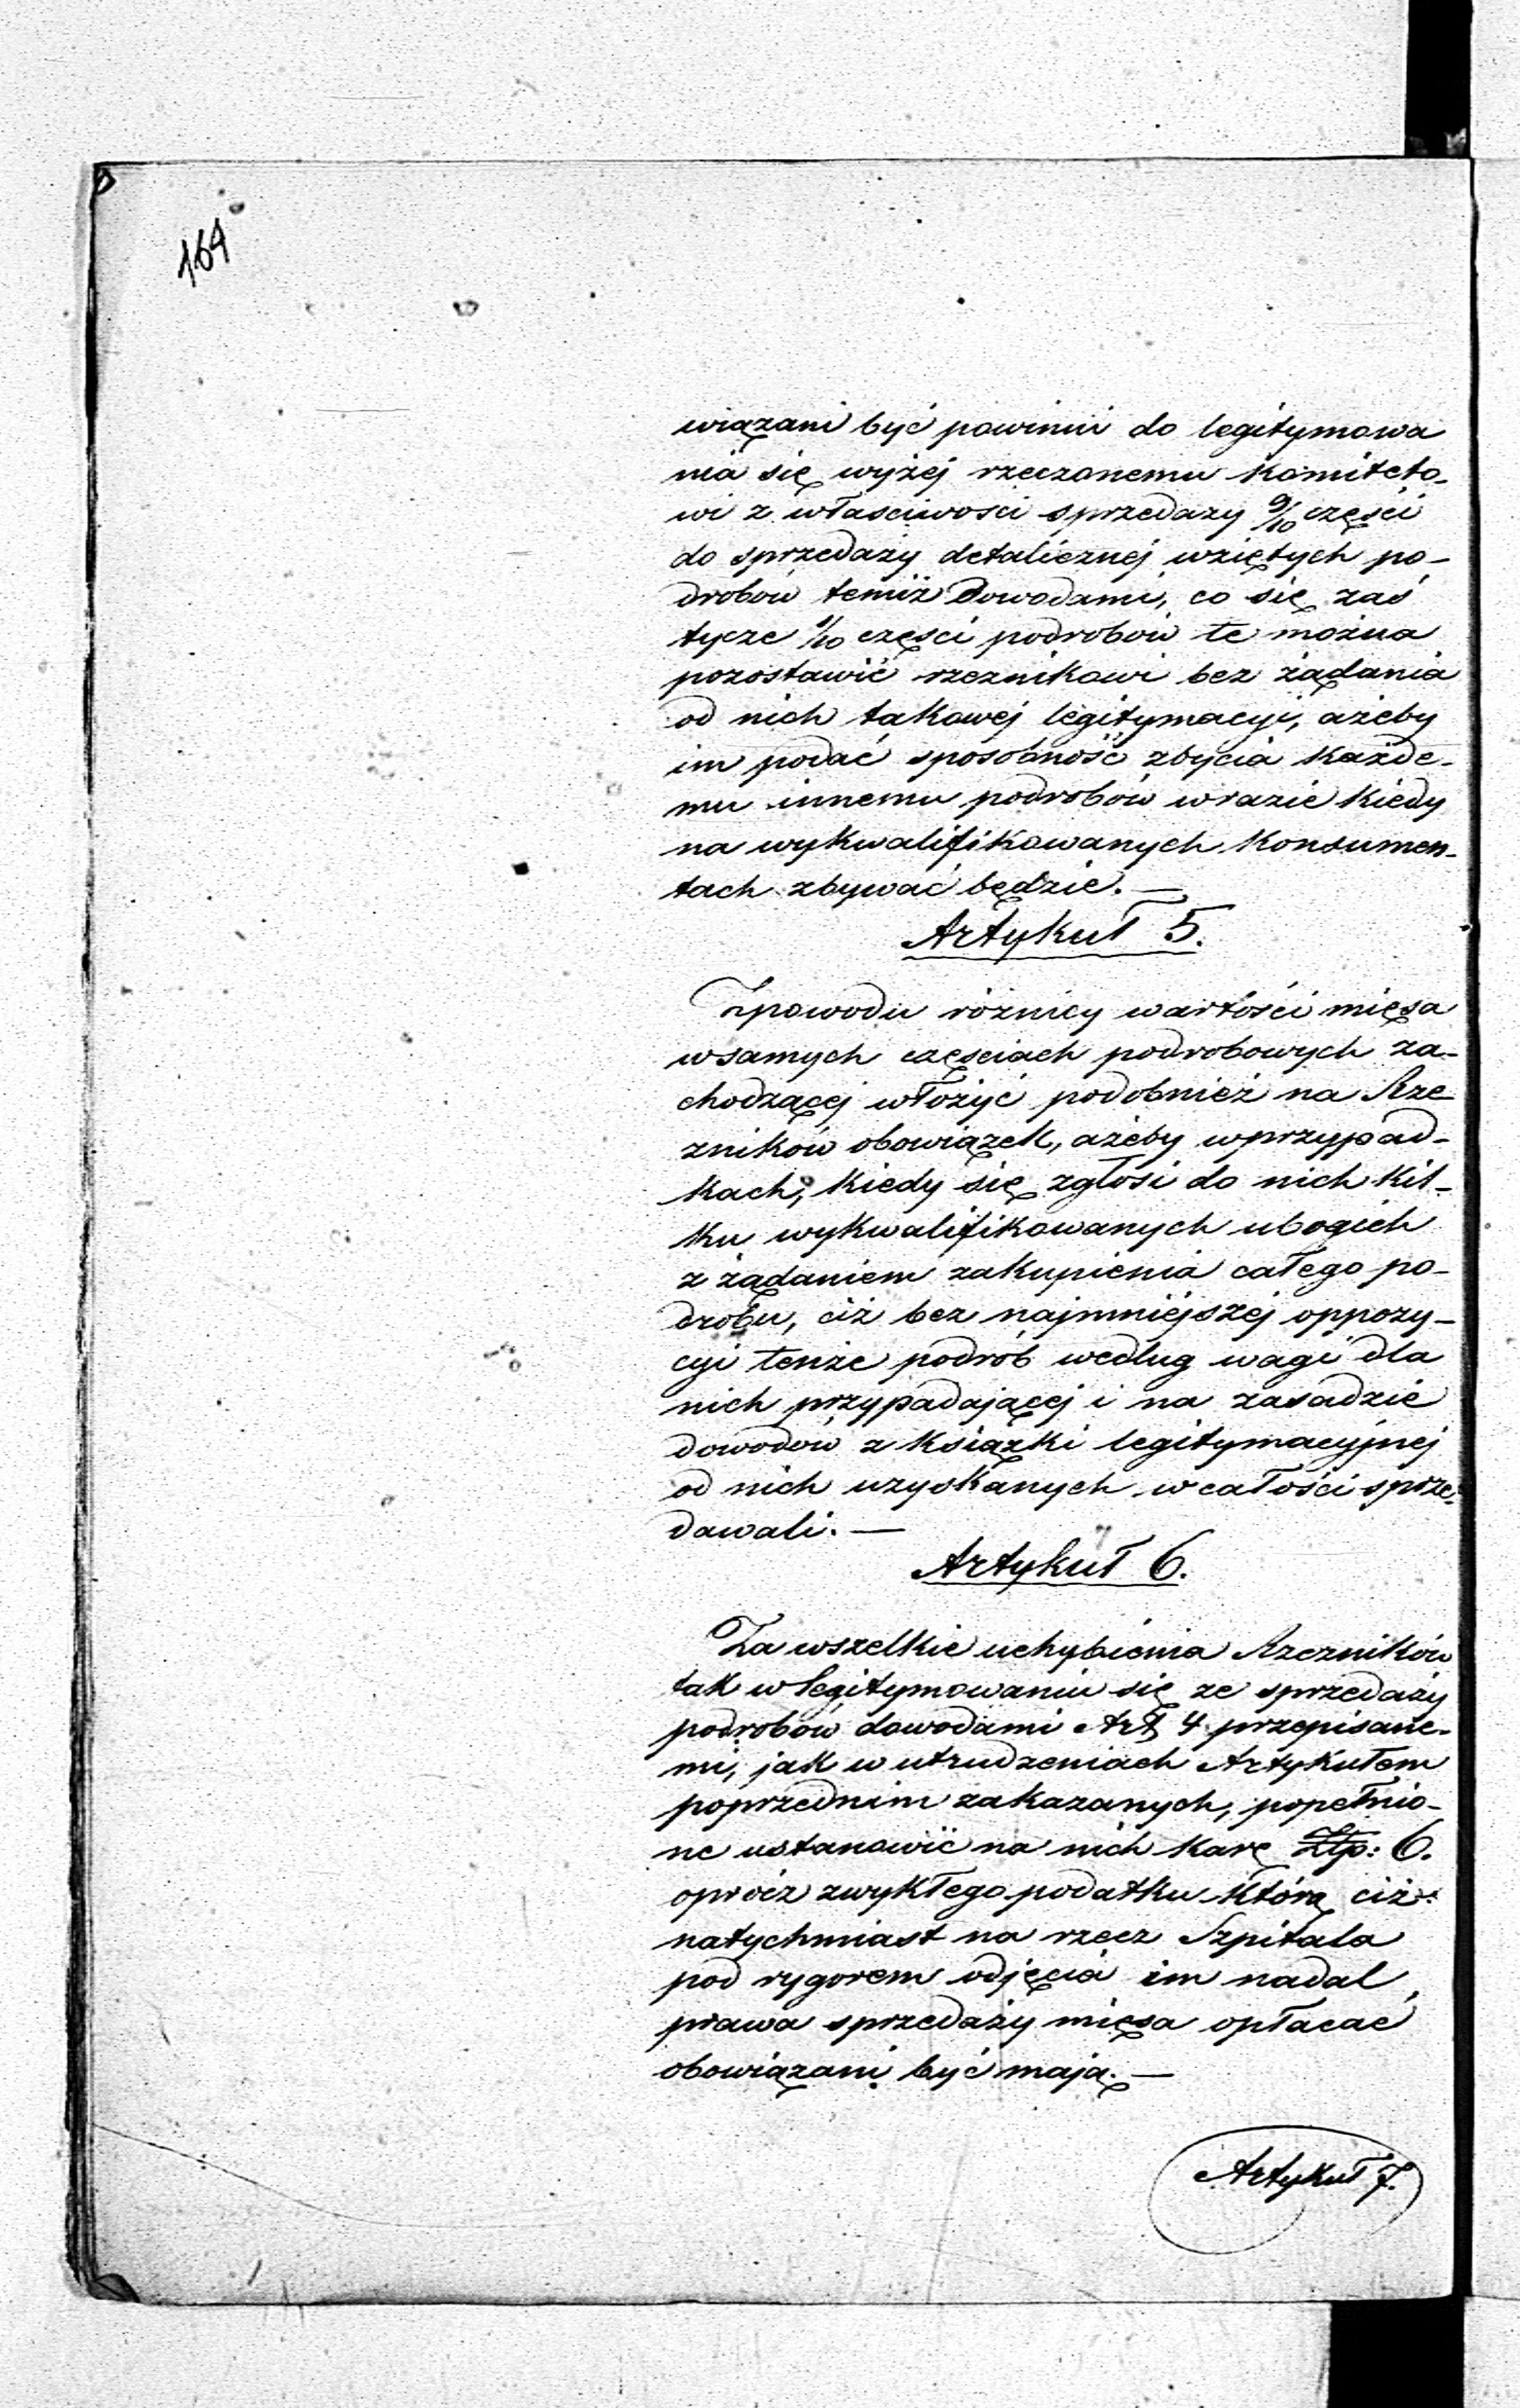 164
wiązani być powinni do legitymowa
nia się wyżej rzeczonemu Komiteto-
wi z właściwosci sprzedazy 9/10 części
do sprzedaży detalicznej wziętych po-
drobów temiż Dowodami, co się zaś
tycze 1/10 części podrobów te można
pozostawić rzeznikowi bez żądania
od nich takowej legitymacyi, ażeby
im podać sposobność zbycia każde-
mu innemu podrobów wrazie kiedy
na wykwalifikowanych Konsumen-
tach zbywać będzie. —
Artykuł 5.
Zpowodu różnicy wartości mięsa
wsamych częsciach podrobowych za-
chodzącej włożyć podobnież na Rze
zników obowiązek, ażeby wprzypad-
kach, kiedy się zgłosi do nich kil-
ku wykwalifikowanych ubogich
z żądaniem zakupienia całego po-
drobu, ciż bez najmniejszej oppozy-
cyi tenże podrób według wagi dla
nich przypadającej i na zasadzie
dowodów z książki legitymacyjnej
od nich uzyskanych wcałości sprze-
dawali. —
Artykuł 6.
Za wszelkie uchybienia Rzezników
tak w legitymowaniu się ze sprzedaży
podrobów dowodami Art 4 przepisane-
mi, jak w utrudzeniach Artykułem
poprzednim zakazanych, popełnio-
ne ustanowić na nich karę Złp: 6.
oprócz zwykłego podatku którą ciż
natychmiast na rzecz Szpitala
pod rygorem odjęcia im nadal
prawa sprzedaży mięsa opłacać
obowiązani być mają. —
Artykuł 7.